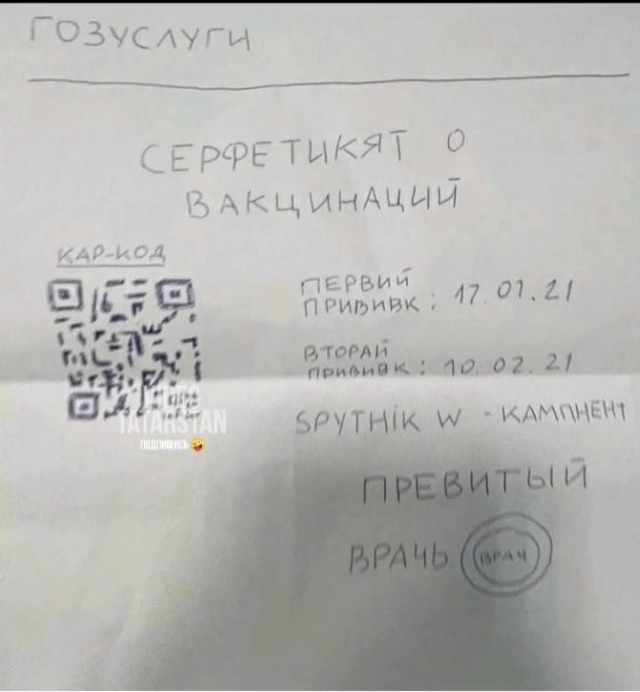 ГОЗУСЛУГИ
СЕРФЕТИКЯТ О
ВАКЦИНАЦИЙ
КАР-КОД
ПЕРВИЙ
ПРИВИВК : 17.01.21
ВТОРАЙ
ПРИВИВК : 10.02.21
SPYTHiK W - КАМПНЕНТ
TATARSTAN
ПОДПИШИСЬ 🤪
ПРЕВИТЫЙ
ВРАЧЬ ВРАЧ